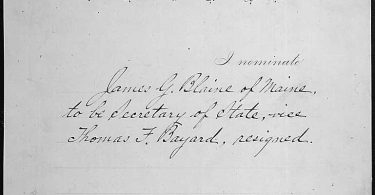 I nominate
James G. Blaine of Maine,
to be Secretary of State, vice
Thomas F. Bayard, resigned.